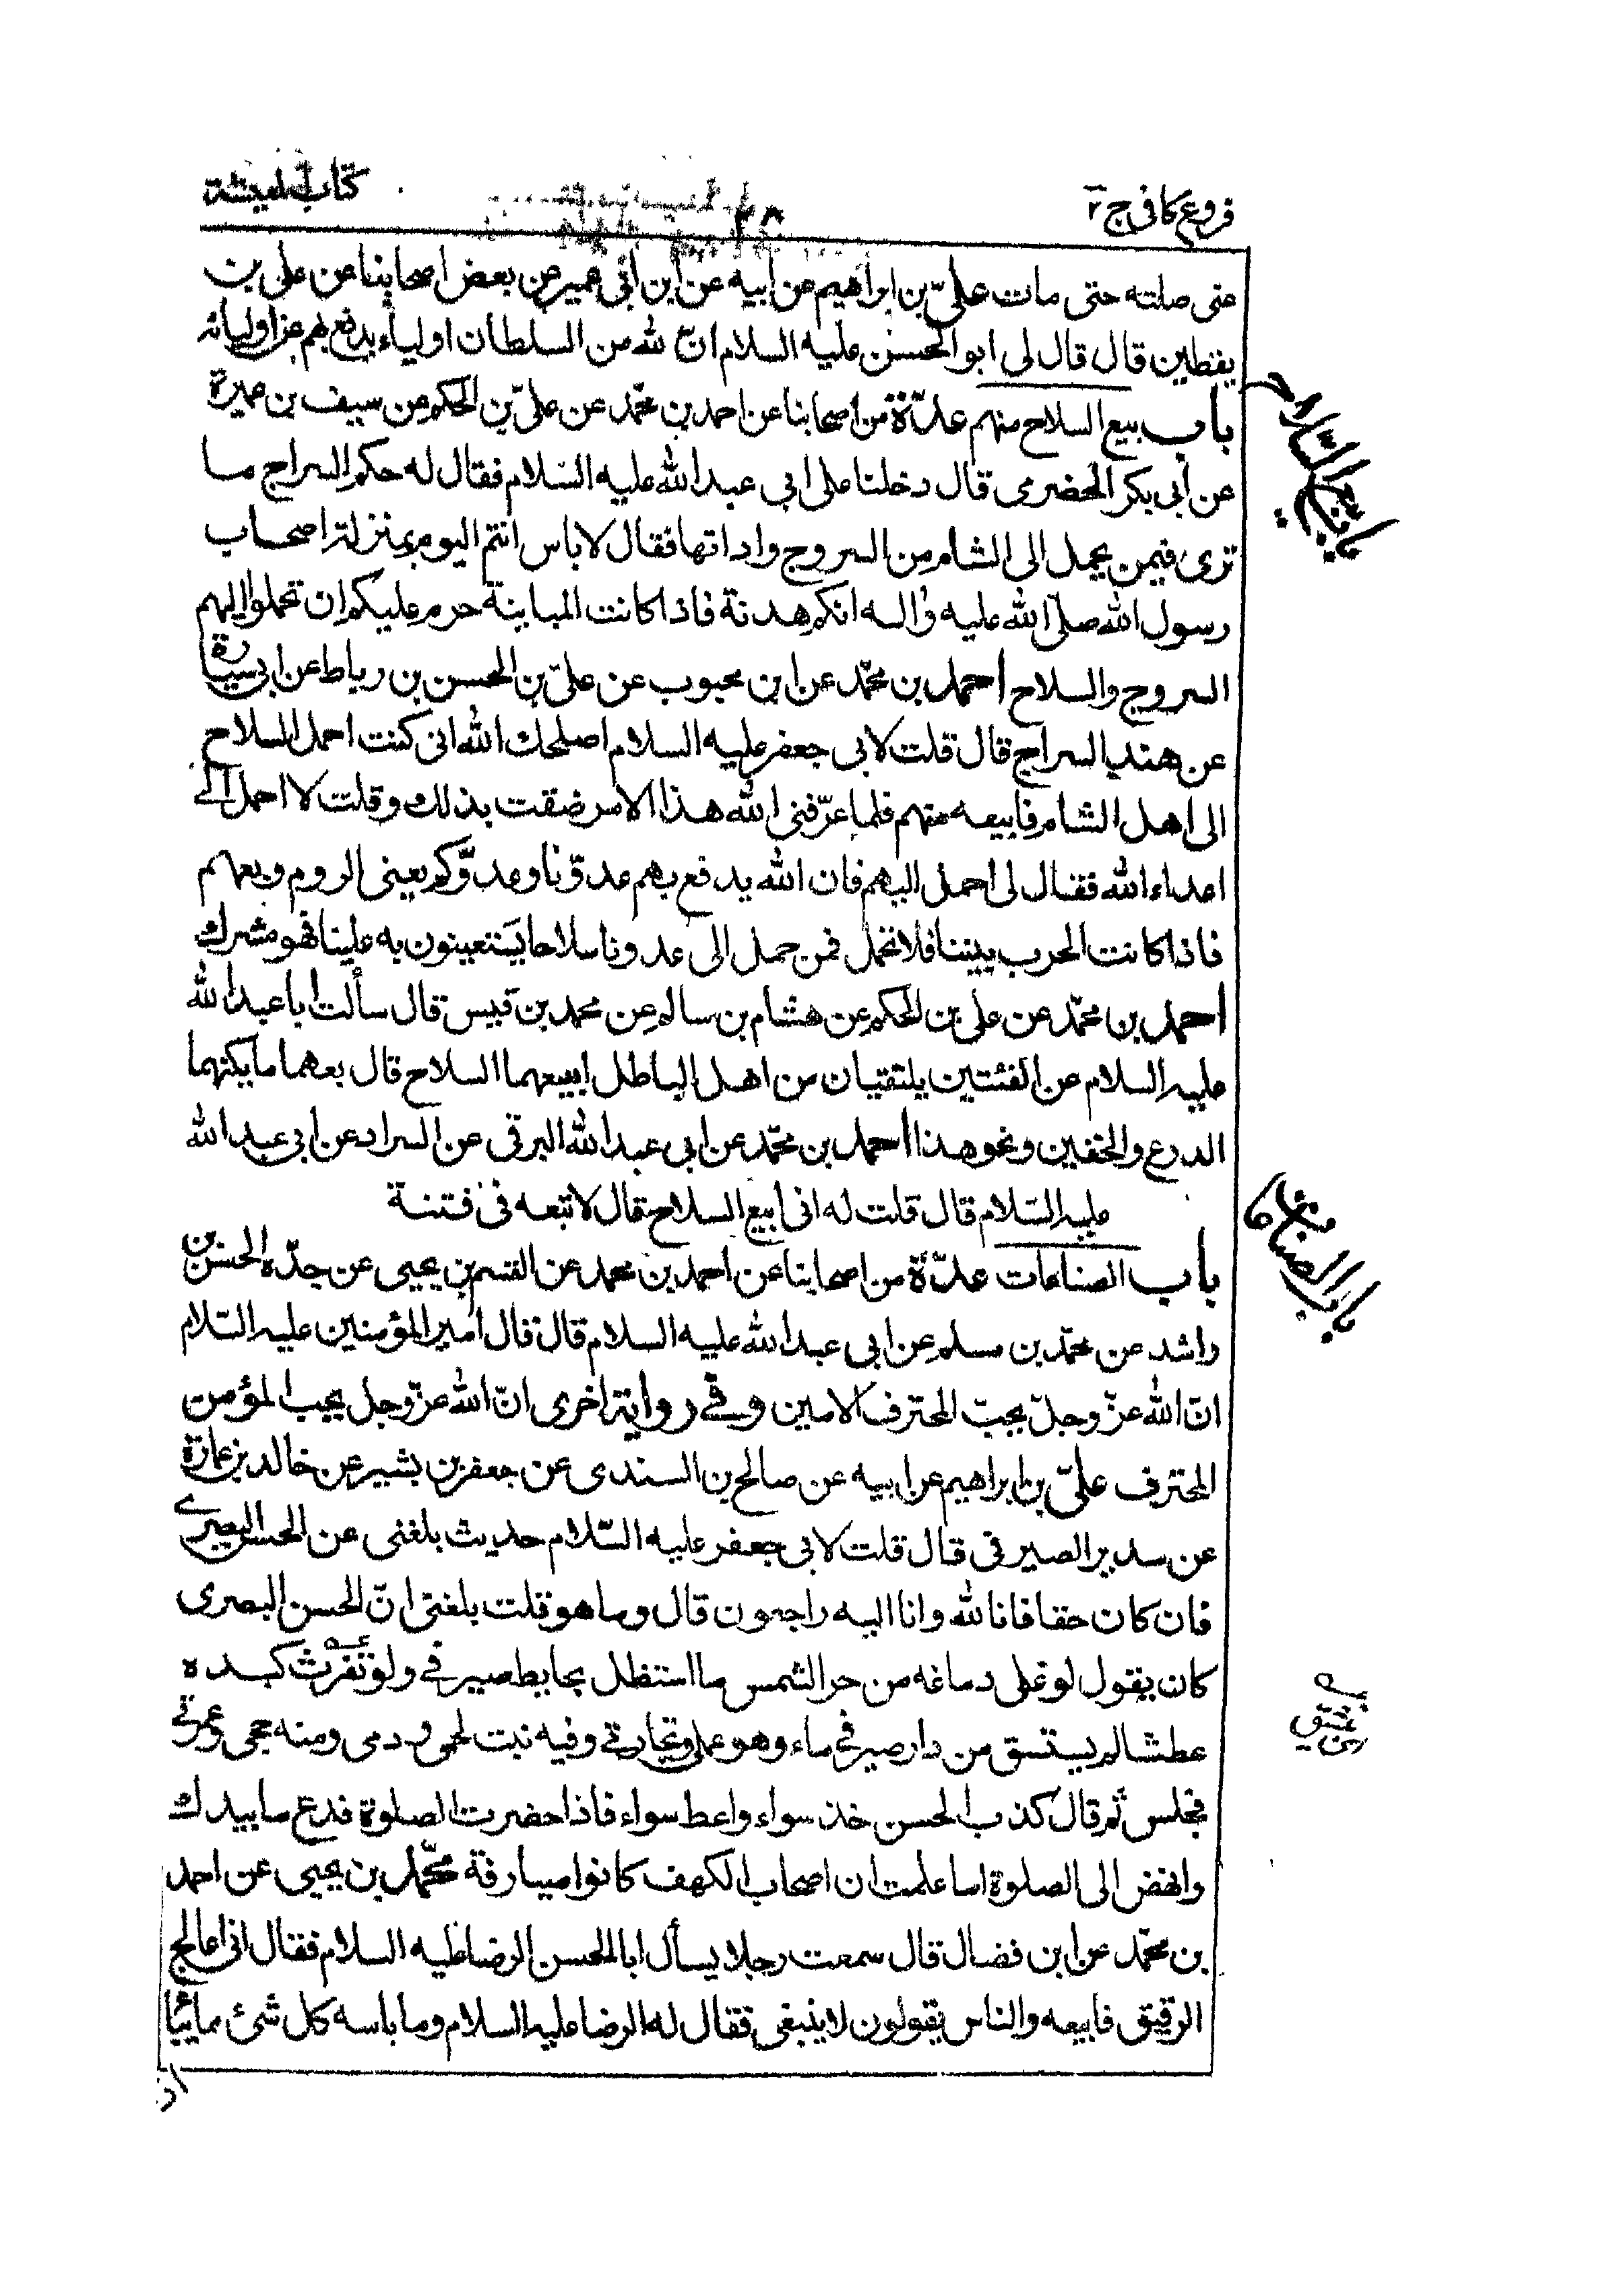 فروع كافى ج ٢
كتاب المعيشة
عنى صلته حتى مات علىّ بن ابراهيم عن ابيه عن ابن ابى عمير عن بعض اصحابنا عن على بن
يقطين قال قال لى ابو الحسن عليه السلام انّ لله من السلطان اولياء يدفع بهم عن اوليائه
باب بيع السلاح منهم عدّة من اصحابنا عن احمد بن محمّد عن علىّ بن الحكم عن سيف بن عميرة
عن ابى بكر الحضرمى قال دخلنا على ابى عبد الله عليه السّلام فقال له حكم السراج ما
ترى فيمن يحمل الى الشام من السروج واداتها فقال لا باس انتم اليوم بمنزلة اصحاب
رسول الله صلّى الله عليه واله انكم هدنة فاذا كانت المباينة حرم عليكم ان تحملوا اليهم
السروج والسلاح احمد بن محمّد عن ابن محبوب عن علىّ بن الحسن بن رباط عن ابى سيارة
عن هند السراج قال قلت لابى جعفر عليه السلام اصلحك الله انى كنت احمل السلاح
الى اهل الشام فابيعه منهم فلما عرّفنى الله هذا الامر ضقت بذلك وقلت لا احمل الى
اعداء الله فقال لى احمل اليهم فان الله يدفع بهم عدوّنا وعدوّكم يعنى الروم وبعهم
فاذا كانت الحرب بيننا فلا تحمل فمن حمل الى عدونا سلاحا يستعينون به علينا فهو مشرك
احمد بن محمّد عن على بن الحكم عن هشام بن سالم عن محمد بن قيس قال سألت ابا عبد الله
عليه السلام عن الفئتين يلتقيان من اهل الباطل ابيعهما السلاح قال بعهما ما يكنهما
الدرع والخفين ونحو هذا احمد بن محمّد عن ابى عبد الله البرقى عن السراد عن ابى عبد الله
عليه السّلام قال قلت له انى ابيع السلاح قال لا تبعه فى فتنة
باب الصناعات عدّة من اصحابنا عن احمد بن محمد عن القسم بن يحيى عن جدّه الحسن بن
راشد عن محمّد بن مسلم عن ابى عبد الله عليه السلام قال قال امير المؤمنين عليه السّلام
انّ الله عزّ وجلّ يحبّ المحترف الامين وفى رواية اخرى انّ الله عزّ وجل يحب المؤمن
المحترف علىّ بن ابراهيم عن ابيه عن صالح بن السندى عن جعفر بن بشير عن خالد بن عمارة
عن سدير الصيرفى قال قلت لابى جعفر عليه السّلام حديث بلغنى عن الحسن البصرى
فان كان حقا فانا لله وانا اليه راجعون قال وما هو قلت بلغنى انّ الحسن البصرى
كان يقول لو غلى دماغه من حر الشمس ما استظل بحايط صيرفى ولو تفرثث كبده
عطشا لم يستسق من دار صيرفى ماء وهو عملى وتجارتى وفيه نبت لحمى ودمى ومنه حجى وعمرتى
فجلس ثم قال كذب الحسن خذ سواء واعط سواء فاذا حضرت الصلوة فدع ما بيدك
وانهض الى الصلوة اما علمت ان اصحاب الكهف كانوا صيارفة محمّد بن يحيى عن احمد
بن محمّد عن ابن فضال قال سمعت رجلا يسأل ابا الحسن الرضا عليه السلام فقال انى اعالج
الرقيق فابيعه والناس يقولون لا ينبغى فقال له الرضا عليه السلام وما باسه كل شئ مما يباع
باب بيع السلاح
باب الصناعات